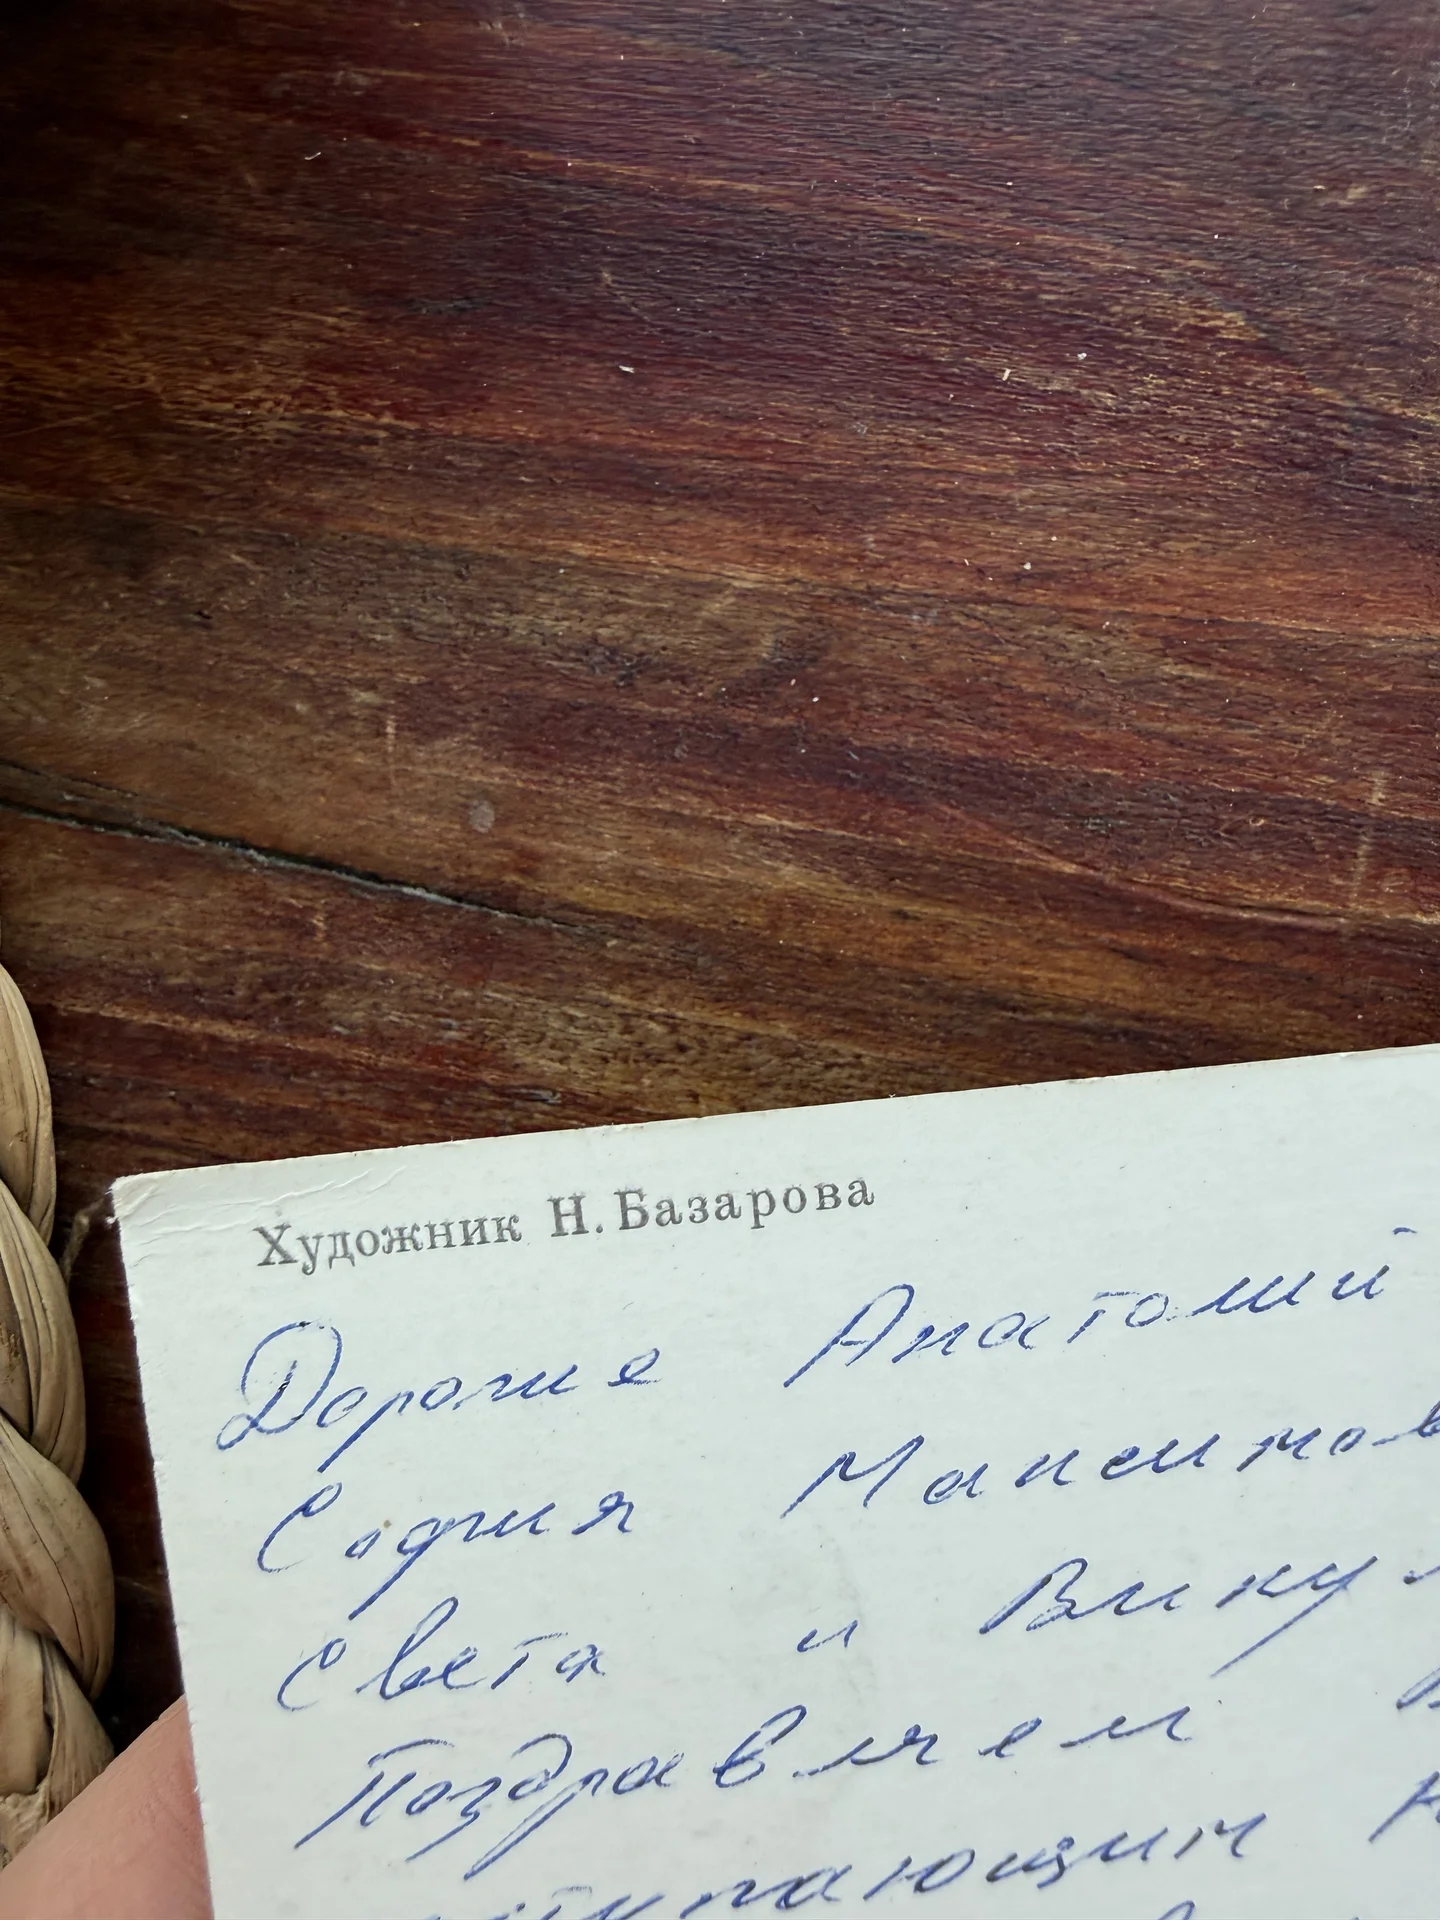 Художник Н. Базарова
Дорогие Анатолий
София Максимов
Света и Викул
Поздравляем
тупающим